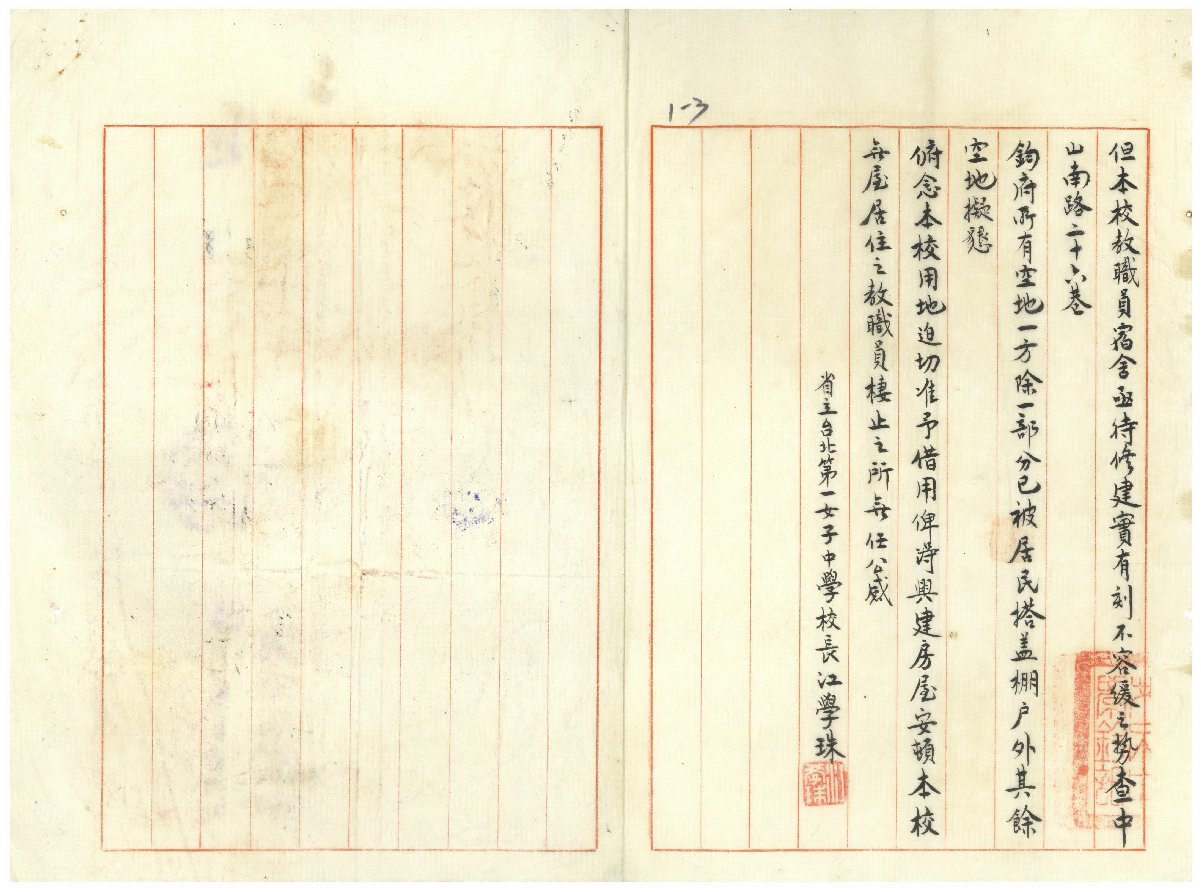 1-3
但本校教職員宿舍亟待修建實有刻不容緩之勢查中
山南路二十六巷
鈞府所有空地一方除一部分已被居民搭盖棚户外其餘
空地擬懇
俯念本校用地迫切准予借用俾得興建房屋安頓本校
無屋居住之教職員棲止之所無任公感
省立台北第一女子中學校長江學珠
江學珠